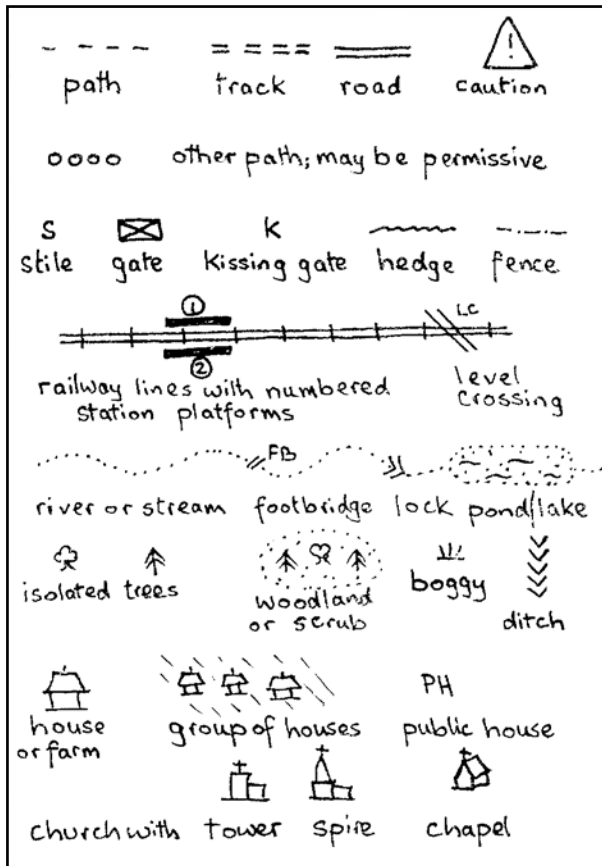 !
path track road caution
other path; may be permissive
S K
stile gate kissing gate hedge fence
1
LC
2
railway lines with numbered station platforms
level crossing
FB
river or stream footbridge lock pond/lake
isolated trees
woodland or scrub
boggy
ditch
PH
house or farm
group of houses
public house
church with tower spire chapel